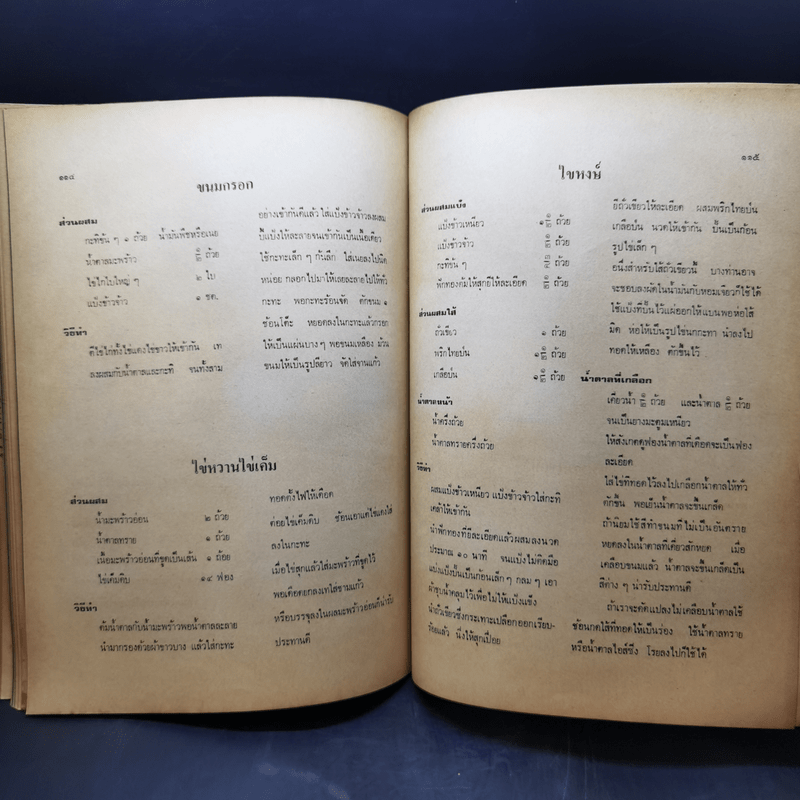 ๑๑๔
ขนมกรอก
ส่วนผสม
กะทิข้น ๆ ๑ ถ้วย น้ำมันพืชหรือเนย
น้ำตาลมะพร้าว ถ้วย
ไข่ไก่ใบใหญ่ ๆ ๒ ใบ
แป้งข้าวจ้าว ๑ ชอ.
วิธีทำ
ตีไข่ไก่ทั้งไข่แดงไข่ขาวให้เข้ากัน เท
ลงผสมกับน้ำตาลและกะทิ จนทั้งสาม
อย่างเข้ากันดีแล้ว ใส่แป้งข้าวจ้าวลงผสม
บี้แป้งให้ละลายจนเข้ากันเป็นเนื้อเดียว
ใช้กะทะเล็ก ๆ ก้นลึก ใส่เนยลงไปนิด
หน่อย กลอกไปมาให้เลยละลายไปให้ทั่ว
กะทะ พอกะทะร้อนจัด ตักขนม ๑
ช้อนโต๊ะ หยอดลงในกะทะแล้วกรอก
ให้เป็นแผ่นบาง ๆ พอขนมเหลือง ม้วน
ขนมให้เป็นรูปสี่ยาว จัดใส่จานแก้ว
ไข่หวานไข่เค็ม
ส่วนผสม
น้ำมะพร้าวอ่อน ๒ ถ้วย
น้ำตาลทราย ๑ ถ้วย
เนื้อมะพร้าวอ่อนที่ขูดเป็นเส้น ๑ ถ้วย
ไข่เค็มดิบ ๑๔ ฟอง
วิธีทำ
ต้มน้ำตาลกับน้ำมะพร้าวพอน้ำตาลละลาย
นำมากรองด้วยผ้าขาวบาง แล้วใส่กะทะ
ทอดตั้งไฟให้เดือด
ต่อยไข่เค็มดิบ ช้อนเอาแต่ไข่แดงใส่
ลงในกะทะ
เมื่อไข่สุกแล้วใส่มะพร้าวที่ขูดไว้
พอเดือดยกลงเทใส่ชามแก้ว
หรือบรรจุลงในผลมะพร้าวอ่อนก็น่ารับ
ประทานดี
๑๑๕
ไขหงษ์
ส่วนผสมแป้ง
แป้งข้าวเหนียว ถ้วย
แป้งข้าวจ้าว ถ้วย
กะทิข้น ๆ ถ้วย
ฟักทองต้มให้สุกยีให้ละเอียด ถ้วย
ส่วนผสมไส้
ถั่วเขียว ๑ ถ้วย
พริกไทยป่น ถ้วย
เกลือป่น ถ้วย
น้ำตาลหน้า
น้ำครึ่งถ้วย
น้ำตาลทรายครึ่งถ้วย
วิธีทำ
ผสมแป้งข้าวเหนียว แป้งข้าวจ้าวใส่กะทิ
เคล้าให้เข้ากัน
นำฟักทองที่ยีละเอียดแล้วผสมลงนวด
ประมาณ ๑๐ นาที จนแป้งไม่ติดมือ
แบ่งแป้งปั้นเป็นก้อนเล็ก ๆ กลม ๆ เอา
ผ้าชุบน้ำคลุมไว้เพื่อไม่ให้แป้งแข็ง
นำถั่วเขียวซึ่งกระเทาะเปลือกออกเรียบ-
ร้อยแล้ว นึ่งให้สุกเปื่อย
ยีถั่วเขียวให้ละเอียด ผสมพริกไทยป่น
เกลือป่น นวดให้เข้ากัน ปั้นเป็นก้อน
รูปไข่เล็ก ๆ
อนึ่งสำหรับไส้ถั่วเขียวนี้ บางท่านอาจ
จะชอบลงผัดในน้ำมันกับหอมเจียวก็ใช้ได้
ใช้แป้งที่ปั้นไว้แผ่ออกให้แบนพอห่อไส้
มิด ห่อให้เป็นรูปไข่นกกะทา นำลงไป
ทอดให้เหลือง ตักขึ้นไว้
น้ำตาลที่เกลือก
เคี่ยวน้ำ ถ้วย และน้ำตาล ถ้วย
จนเป็นยางมะตูมเหนียว
ให้สังเกตดูฟองน้ำตาลที่เดือดจะเป็นฟอง
ละเอียด
ใส่ไข่ที่ทอดไว้ลงไปเกลือกน้ำตาลให้ทั่ว
ตักขึ้น พอเย็นน้ำตาลจะขึ้นเกล็ด
ถ้านิยมใช้สีทำขนมที่ไม่เป็นอันตราย
หยดลงในน้ำตาลที่เคี่ยวสักหยด เมื่อ
เคลือบขนมแล้ว น้ำตาลจะขึ้นเกล็ดเป็น
สีต่าง ๆ น่ารับประทานดี
ถ้าเราจะดัดแปลงไม่เคลือบน้ำตาลใช้
ช้อนกดไส้ที่ทอดให้เป็นร่อง ใช้น้ำตาลทราย
หรือน้ำตาลไอส์ซิ่ง โรยลงไปก็ใช้ได้